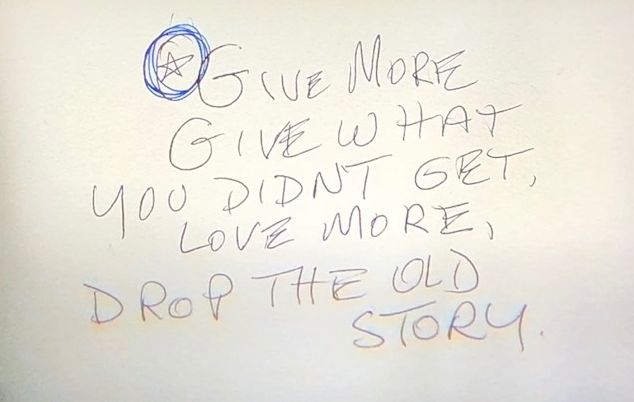 GIVE MORE
GIVE WHAT
YOU DIDNT GET,
LOVE MORE,
DROP THE OLD
STORY.